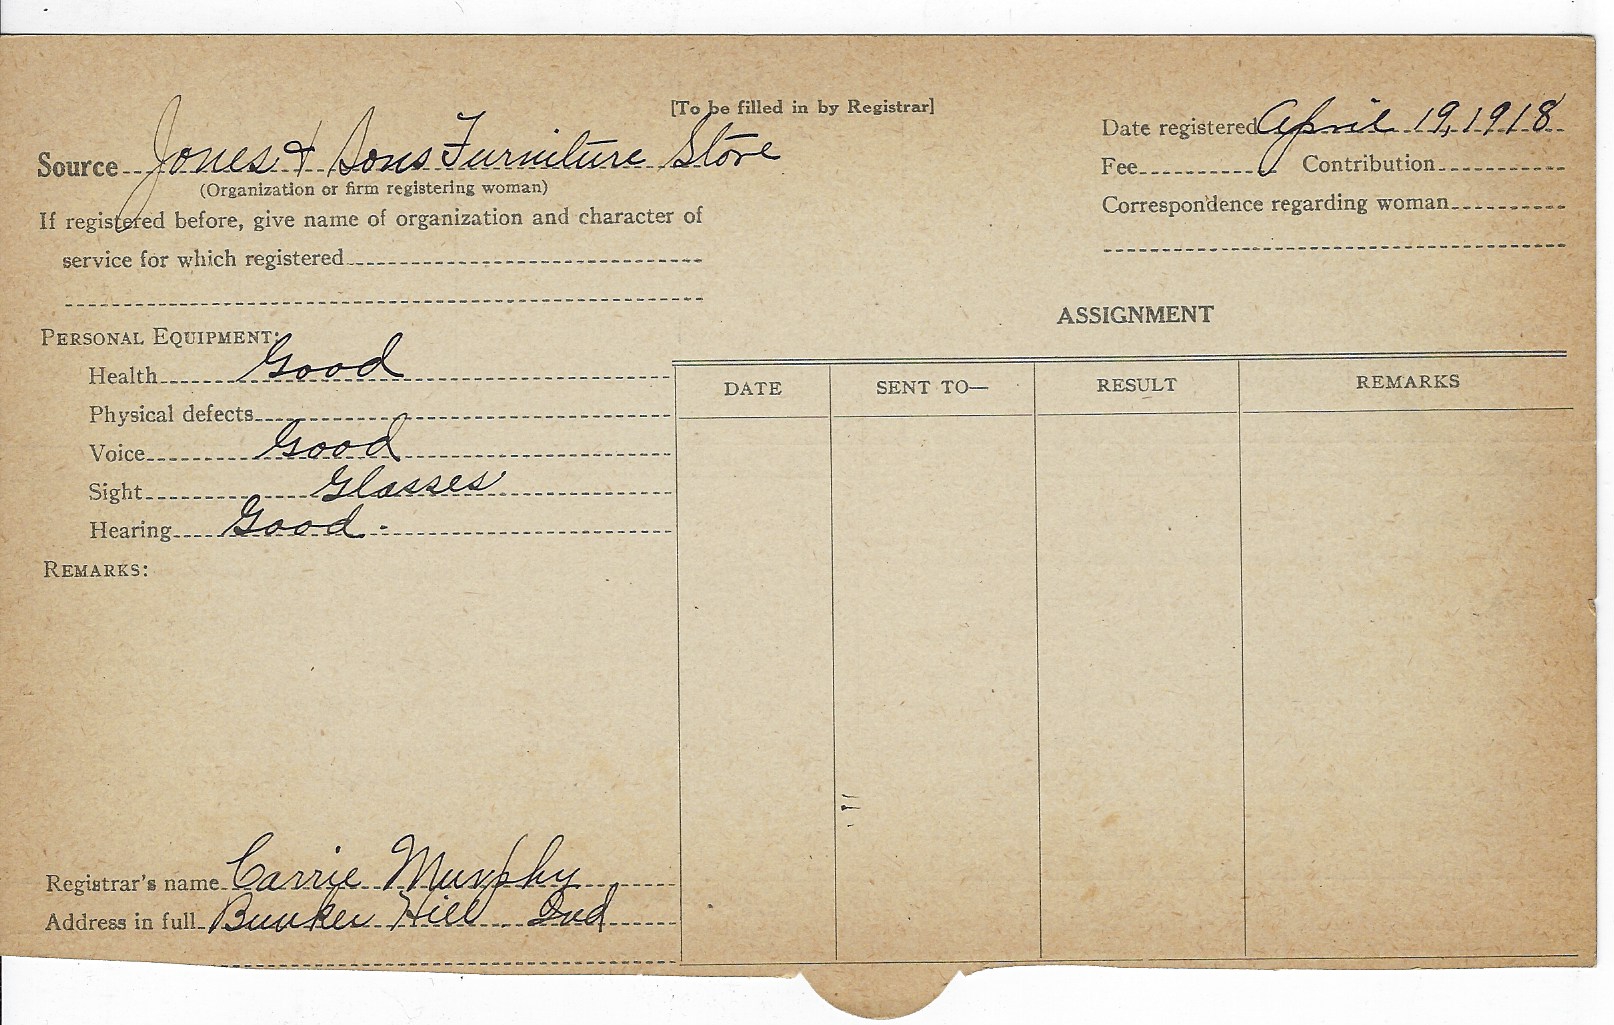 [To be filled in by Registrar]
Source Jones & Sons Furniture Store
(Organization or firm registering woman)
If registered before, give name of organization and character of
service for which registered
Date registered April 19, 1918
Fee Contribution
Correspondence regarding woman
PERSONAL EQUIPMENT:
Health Good
Physical defects
Voice Good
Sight Glasses
Hearing Good
REMARKS:
Registrar's name Carrie Murphy
Address in full Bunker Hill Ind
ASSIGNMENT
DATE SENT TO— RESULT REMARKS